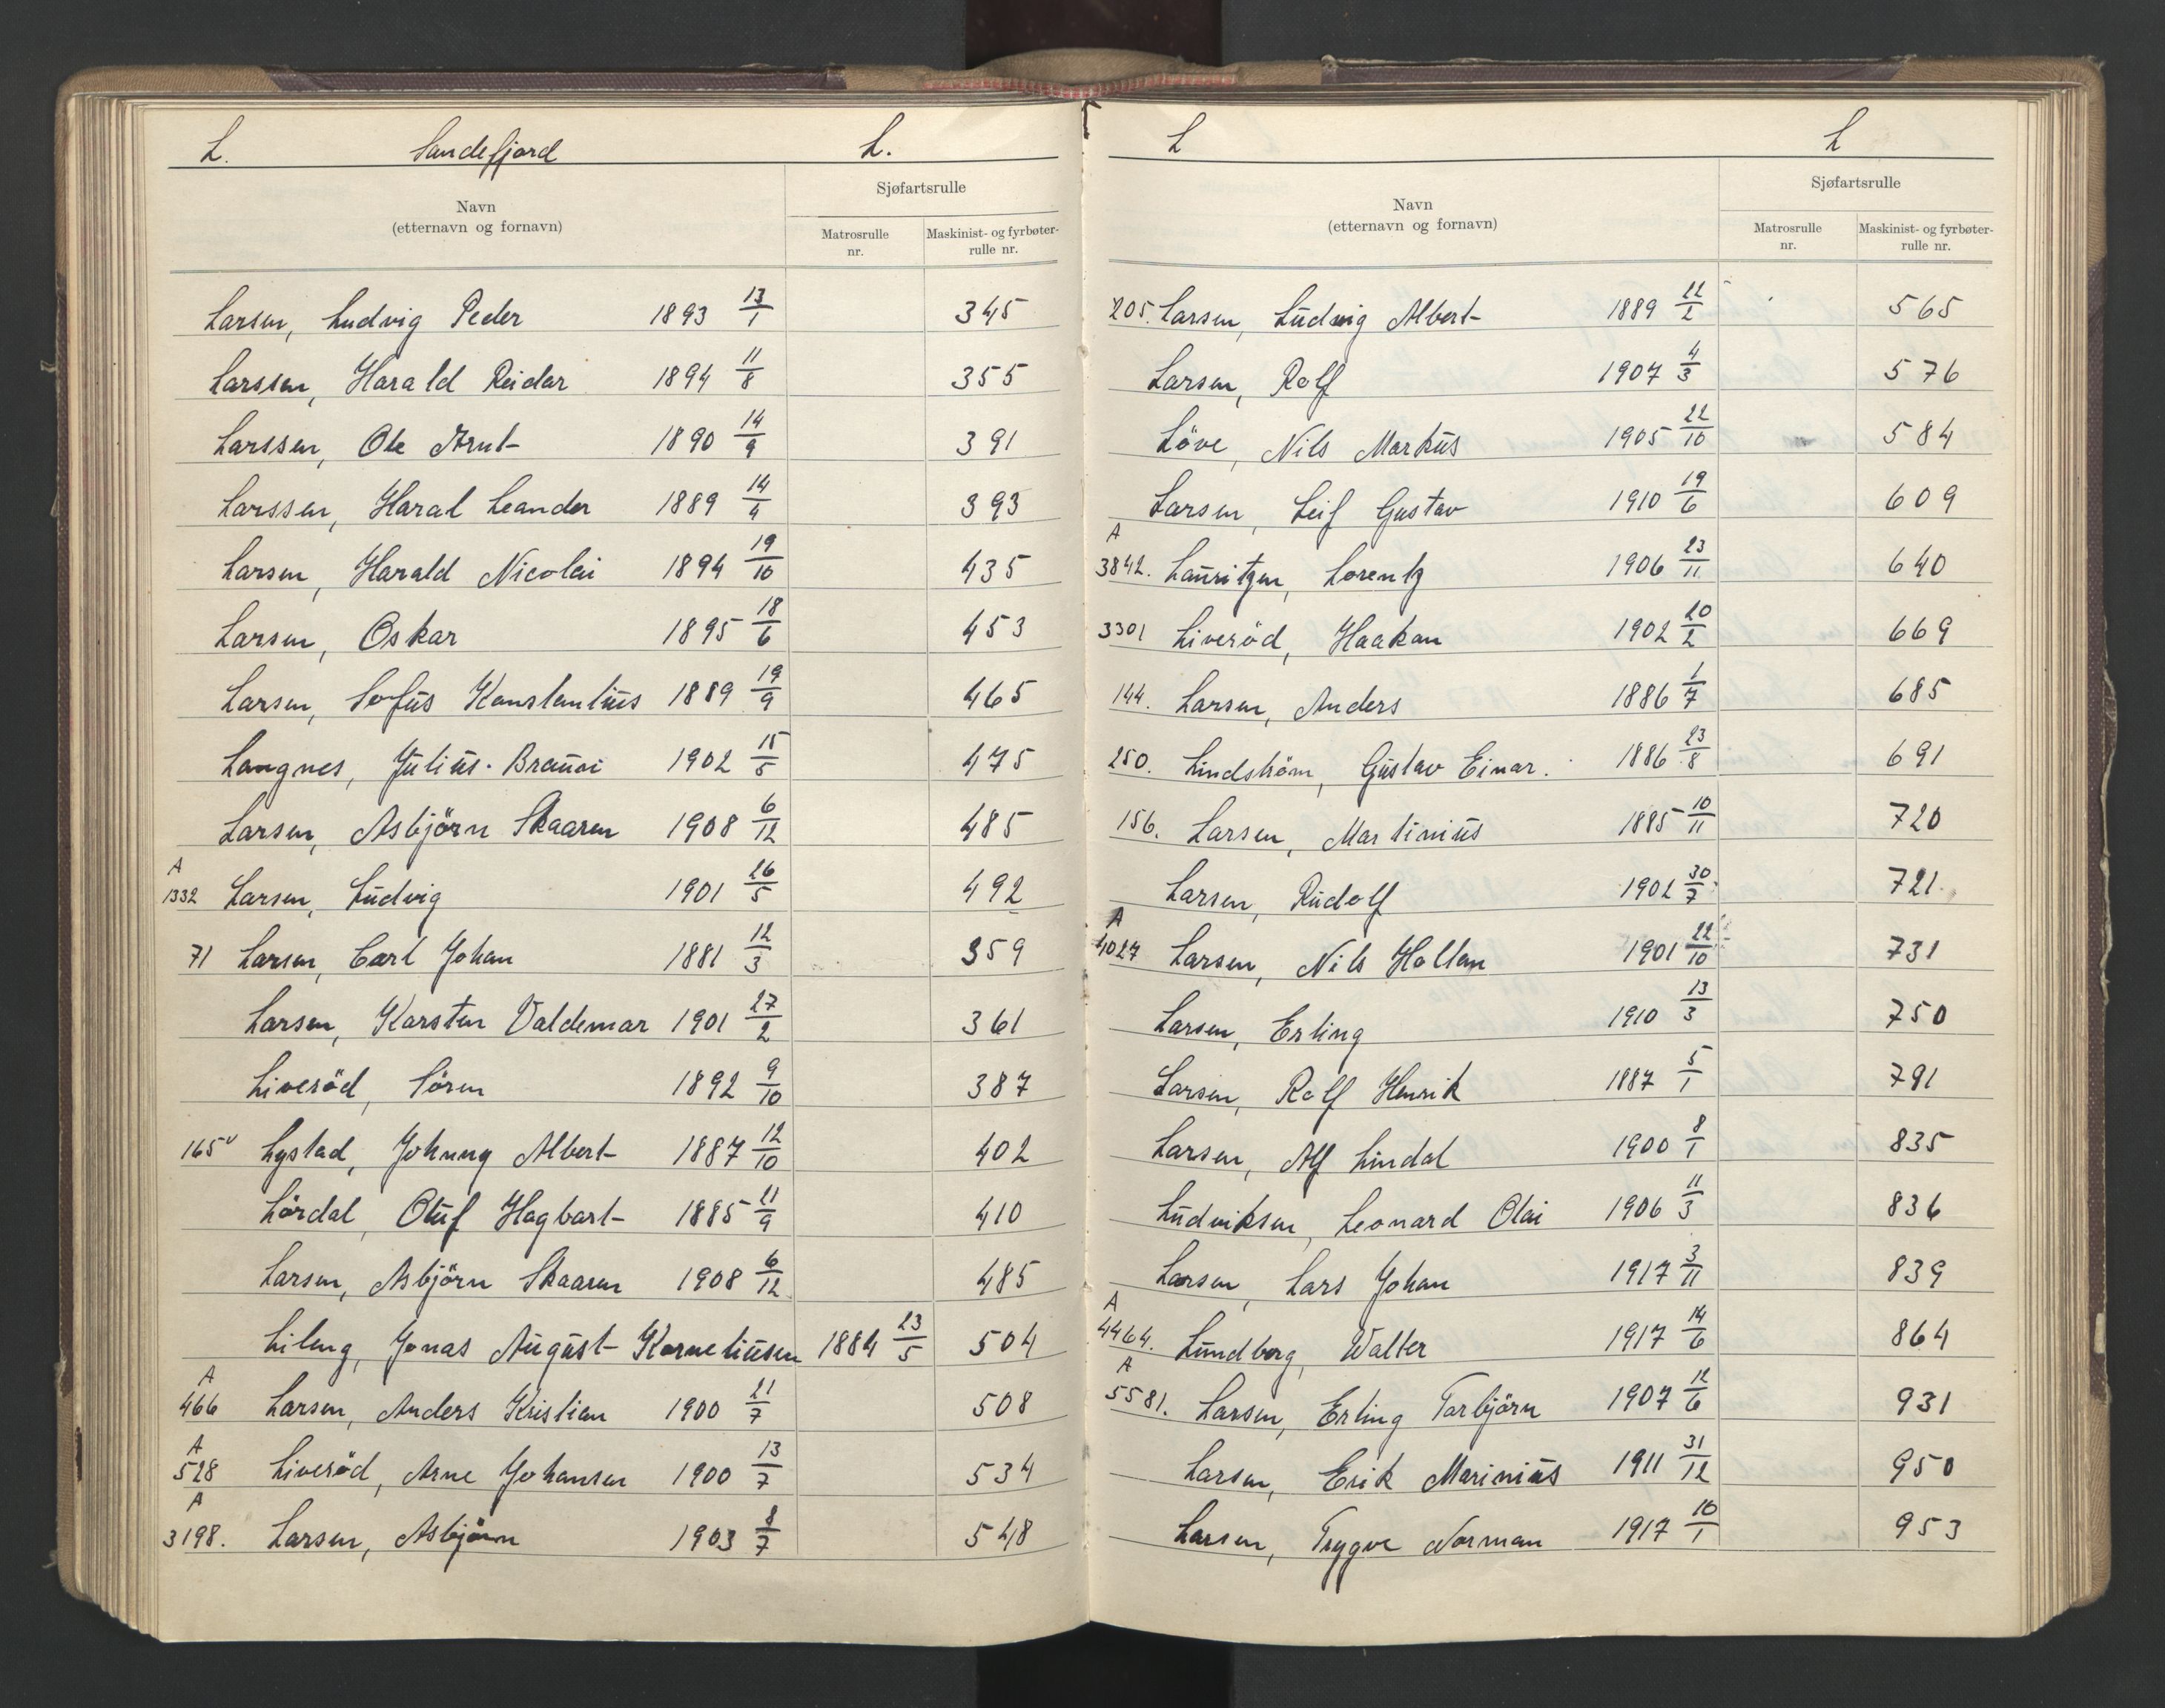 L. Sandefjord L.
Navn
(etternavn og fornavn)
Sjøfartsrulle
Matrosrulle nr.
Maskinist- og fyrbøter-rulle nr.
Larsen, Ludvig Peder 1893 13/1 345
Larssen, Harald Reidar 1894 11/8 355
Larssen, Ole Arnt 1890 14/9 391
Larssen, Haral Leander 1889 14/4 393
Larsen, Harald Nicolai 1894 19/10 435
Larsen, Oskar 1895 18/6 453
Larsen, Sofus Konstantius 1889 19/9 465
Langnes, Julius 1902 15/5 475
Larsen, Asbjörn Skaaren 1908 6/12 485
A 1332 Larsen, Ludvig 1901 26/5 492
71 Larsen, Carl Johan 1881 12/3 359
Larsen, Karsten Valdemar 1901 27/2 361
Liveröd, Sören 1892 9/10 387
165 Lystad, Johnny Albert 1887 12/10 402
Lördal, Oluf Hagbart 1885 21/9 410
Larsen, Asbjörn Skaaren 1908 6/12 485
Jonas August Korneliusen 1884 23/5 504
A 466 Larsen, Anders Kristian 1900 21/7 508
A 528 Liveröd, Arne Johansen 1900 13/7 534
A 3198. Larsen, Asbjörn 1903 8/7 548
L L
Navn
(etternavn og fornavn)
Sjøfartsrulle
Matrosrulle nr.
Maskinist- og fyrbøter-rulle nr.
205. Larsen, Ludvig Albert 1889 22/2 565
Larsen, Rolf 1907 4/3 576
Löve, Nils Markus 1905 22/10 584
Larsen, Leif Gustav 1910 19/6 609
A 3842. Lauritzen, Lorentz 1906 23/11 640
3301 Liveröd, Haakan 1902 20/2 669
144. Larsen, Anders 1886 1/7 685
250. Lindström, Gustav Einar. 1886 23/8 691
156. Larsen, Martinius 1885 10/11 720
Larsen, Rudolf 1902 30/7 721.
A 4027 Larsen, Nils Hollan 1901 22/10 731
Larsen, Erling 1910 13/3 750
Larsen, Rolf Henrik 1887 5/1 791
Larsen, Alf Lindal 1900 8/1 835
Ludviksen, Leonard Olai 1906 11/3 836
Larsen, Lars Johan 1917 3/11 839
A 4464. Lundberg, Walter 1917 14/6 864
A 5581. Larsen, Erling Torbjörn 1907 12/6 931
Larsen, Erik Marinius 1911 31/12 950
Larsen, Trygve Norman 1917 10/1 953